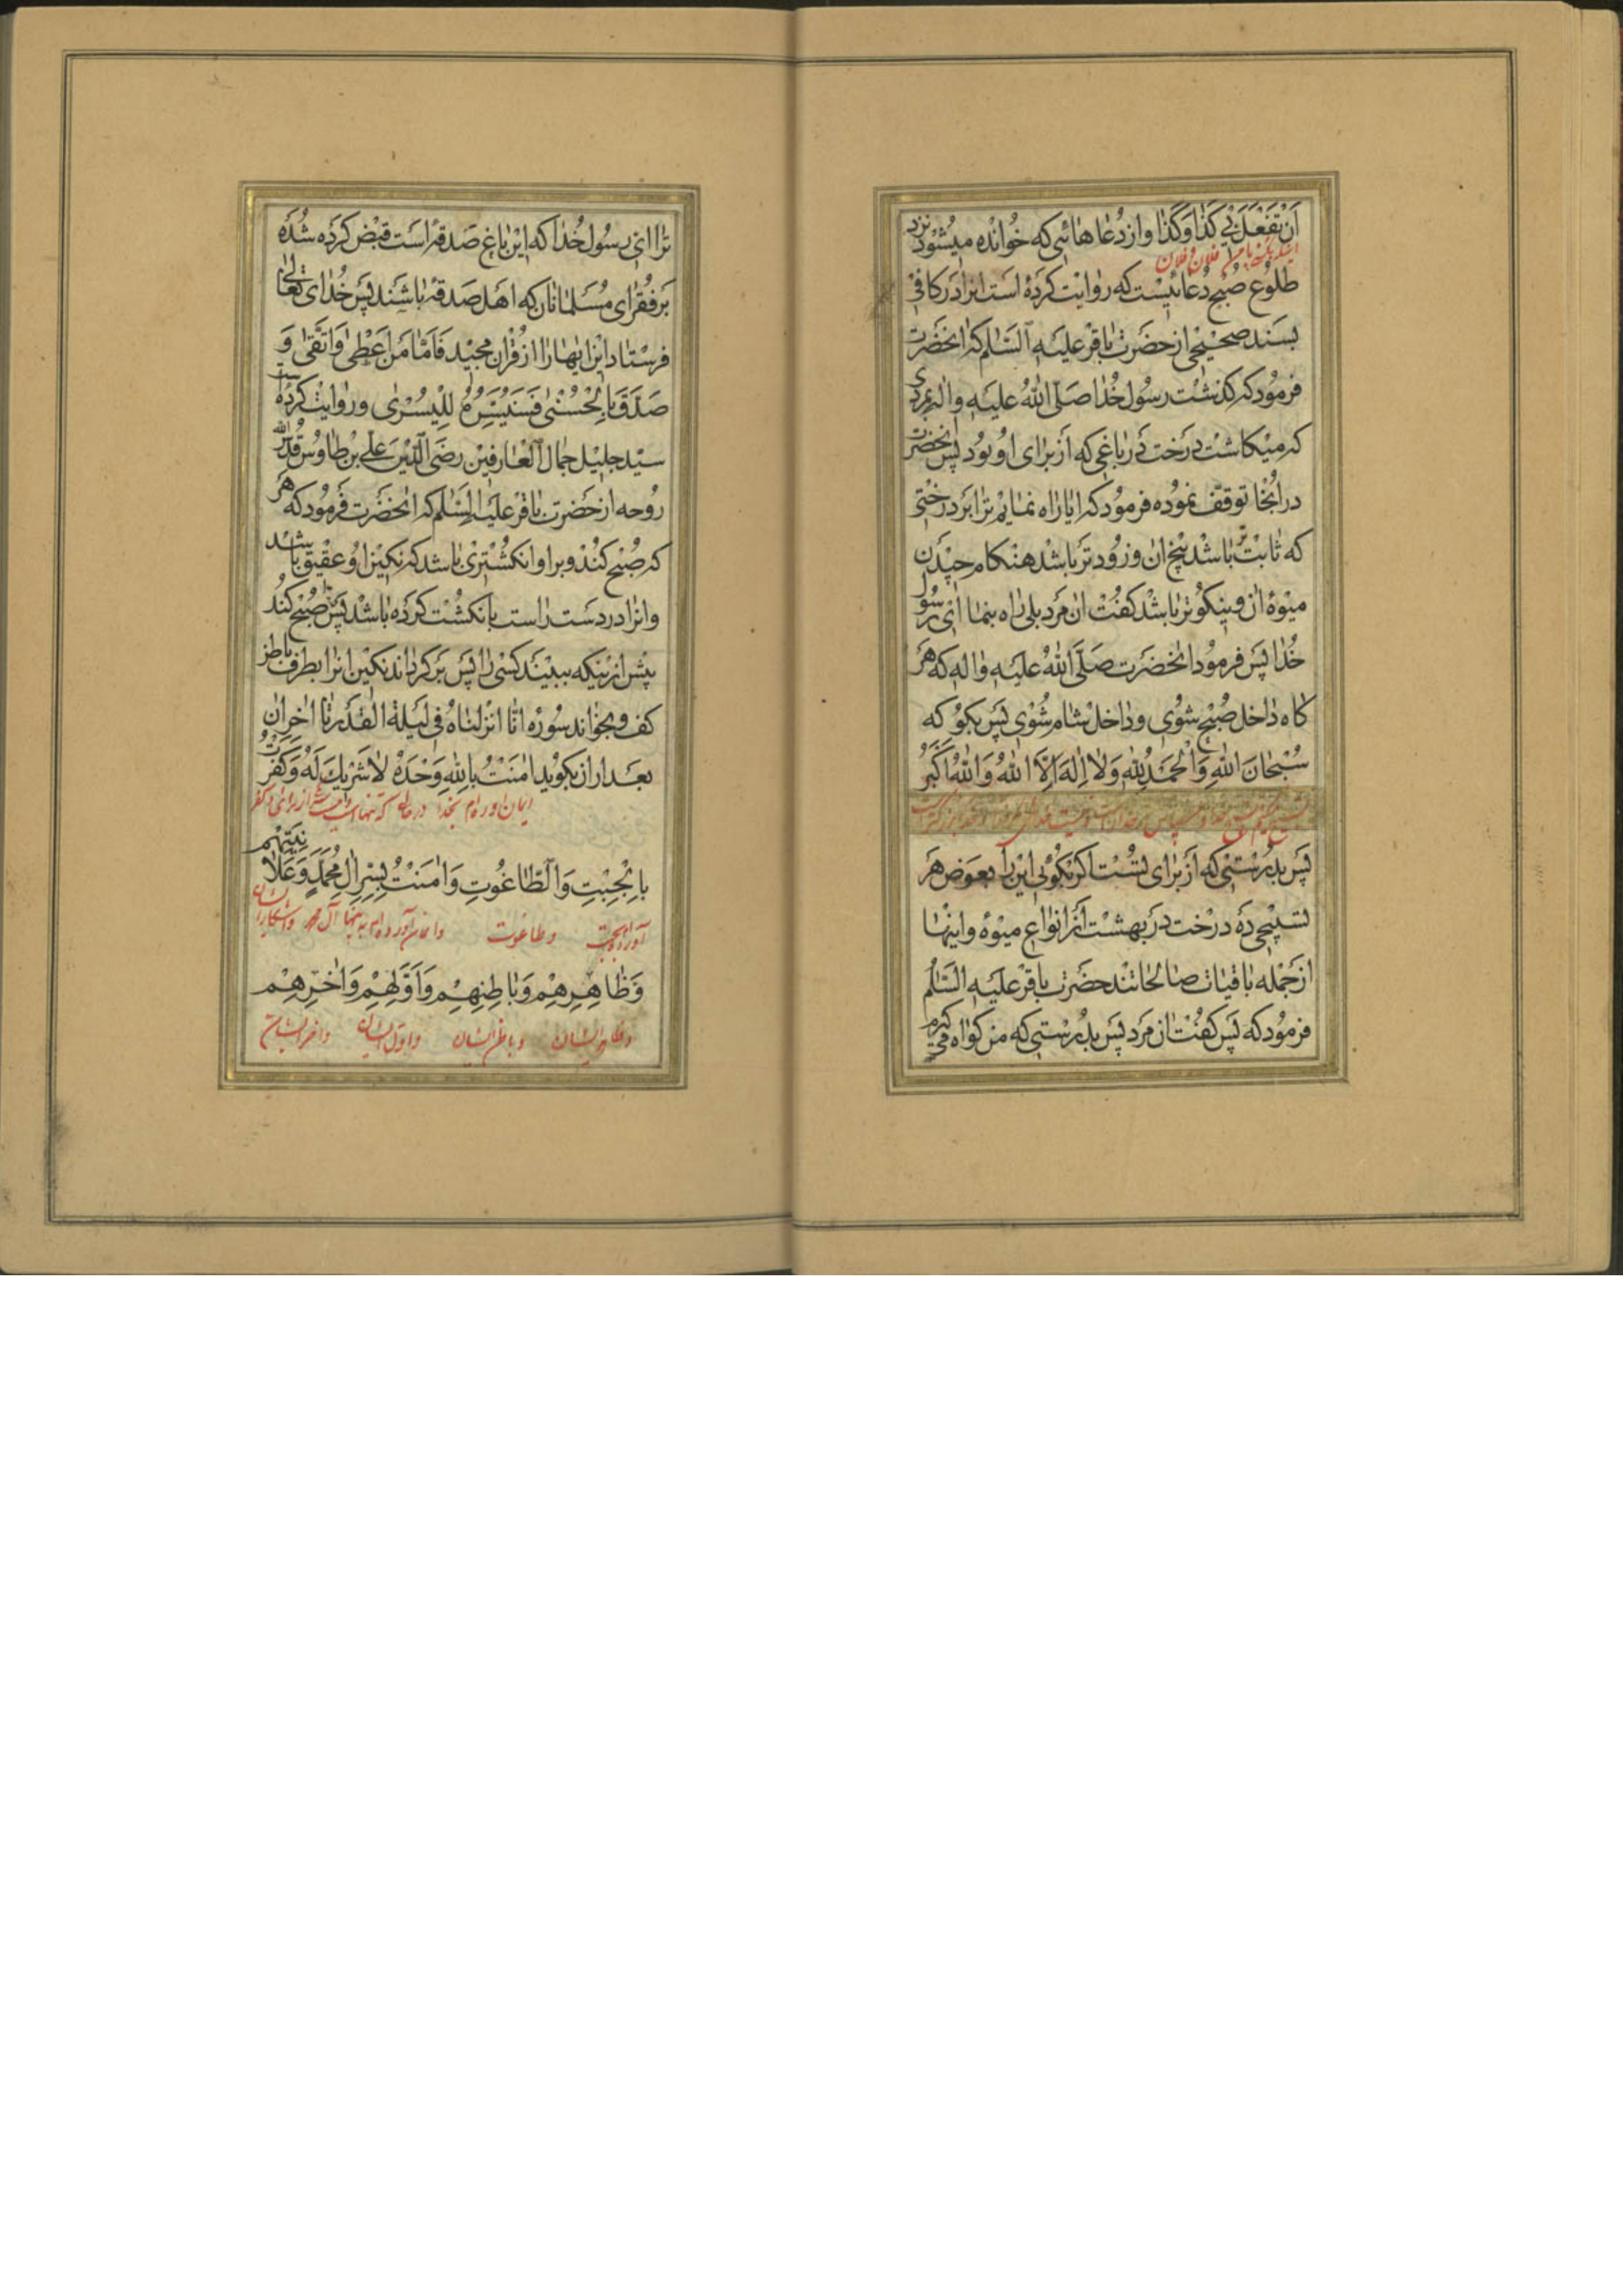 اَنْ تَفْعَلَ بی كَذا وَكَذا واز دُعاهائی كه خُوانده میشود نزد
اینکه بکنی با من فلان و فلان
طلوع صُبح دُعائیست كه روایت كرده است انرا در كافی
بسند صحیحی از حضرت باقر علیه السّلم كه انحضرت
فرمود كه كذشت رسول خُدا صلّی الله علیه واله بمردی
كه میكاشت درخت در باغی كه از برای او بود پس انحضرت
در انجا توقّف نموده فرمود كه ایا راه نمایم ترا بر درختی
كه ثابت تر باشد بیخ ان و زود تر باشد هنكام چیدن
میوۀ ان و نیكو تر باشد كفت ان مرد بلی راه بنما ای رسول
خُدا پس فرمود انحضرت صَلّی الله علیه واله كه هر
كاه داخل صُبح شوی و داخل شام شوی پس بكو كه
سُبْحانَ اللهِ وَالْحَمْدُ لِلّهِ وَلا اِلهَ اِلَّا اللهُ وَاللهُ اَكْبَرُ
پس بدرستی كه از برای تُست اكر بكوئی این را بعوض هر
تسبیحی ده درخت در بهشت از انواع میوه واینها
از جمله باقیات صالحاتند حضرت باقر علیه السّلم
فرمود كه پس كفت ان مرد پس بدرستی كه من كواه می كیرم
ترا ای رسول خُدا كه این باغ صدقه است قبض كرده شده
بر فقرای مُسلمانان كه اهل صدقه باشند پس خُدای تعالی
فرستاد این ایهارا از قُران مجید فَاَمّا مَنْ اَعْطی وَاتَّقی وَ
صَدَّقَ بِالْحُسْنی فَسَنُیَسِّرُهُ لِلْیُسْری وروایت كرده است
سیّد جلیل جمال العارفین رضی الدّین علی بن طاوس قدّس الله
روحه از حضرت باقر علیه السّلم كه انحضرت فرمود كه هر
كه صُبح كند وبر او انكشتری باشد كه نكین او عقیق باشد
وانرا در دست راست بانكشت كرده باشد پس صُبح كند
پیش از اینكه ببیند كسی را پس بركرداند نكین انرا بطرف باطن
كف وبخواند سوره انّا انزلناه فی لیلة القدر تا اخر ان
بعد از ان بكوید امَنْتُ بِاللهِ وَحْدَهُ لا شَریكَ لَهُ وَكَفَرْتُ
ایمان اوردم بخدا در حالی که تنهاست
بِالْجِبْتِ وَالطّاغُوتِ وَامَنْتُ بِسِرِّ الِ مُحَمَّدٍ وَعَلانِیَتِهِمْ
وطاغوت وایمان آورده‌ام به پنهان آل محمد واشکارای ایشان
وَظاهِرِهِمْ وَباطِنِهِمْ وَاَوَّلِهِمْ وَاخِرِهِمْ
وظاهر ایشان وباطن ایشان واول ایشان واخر ایشان